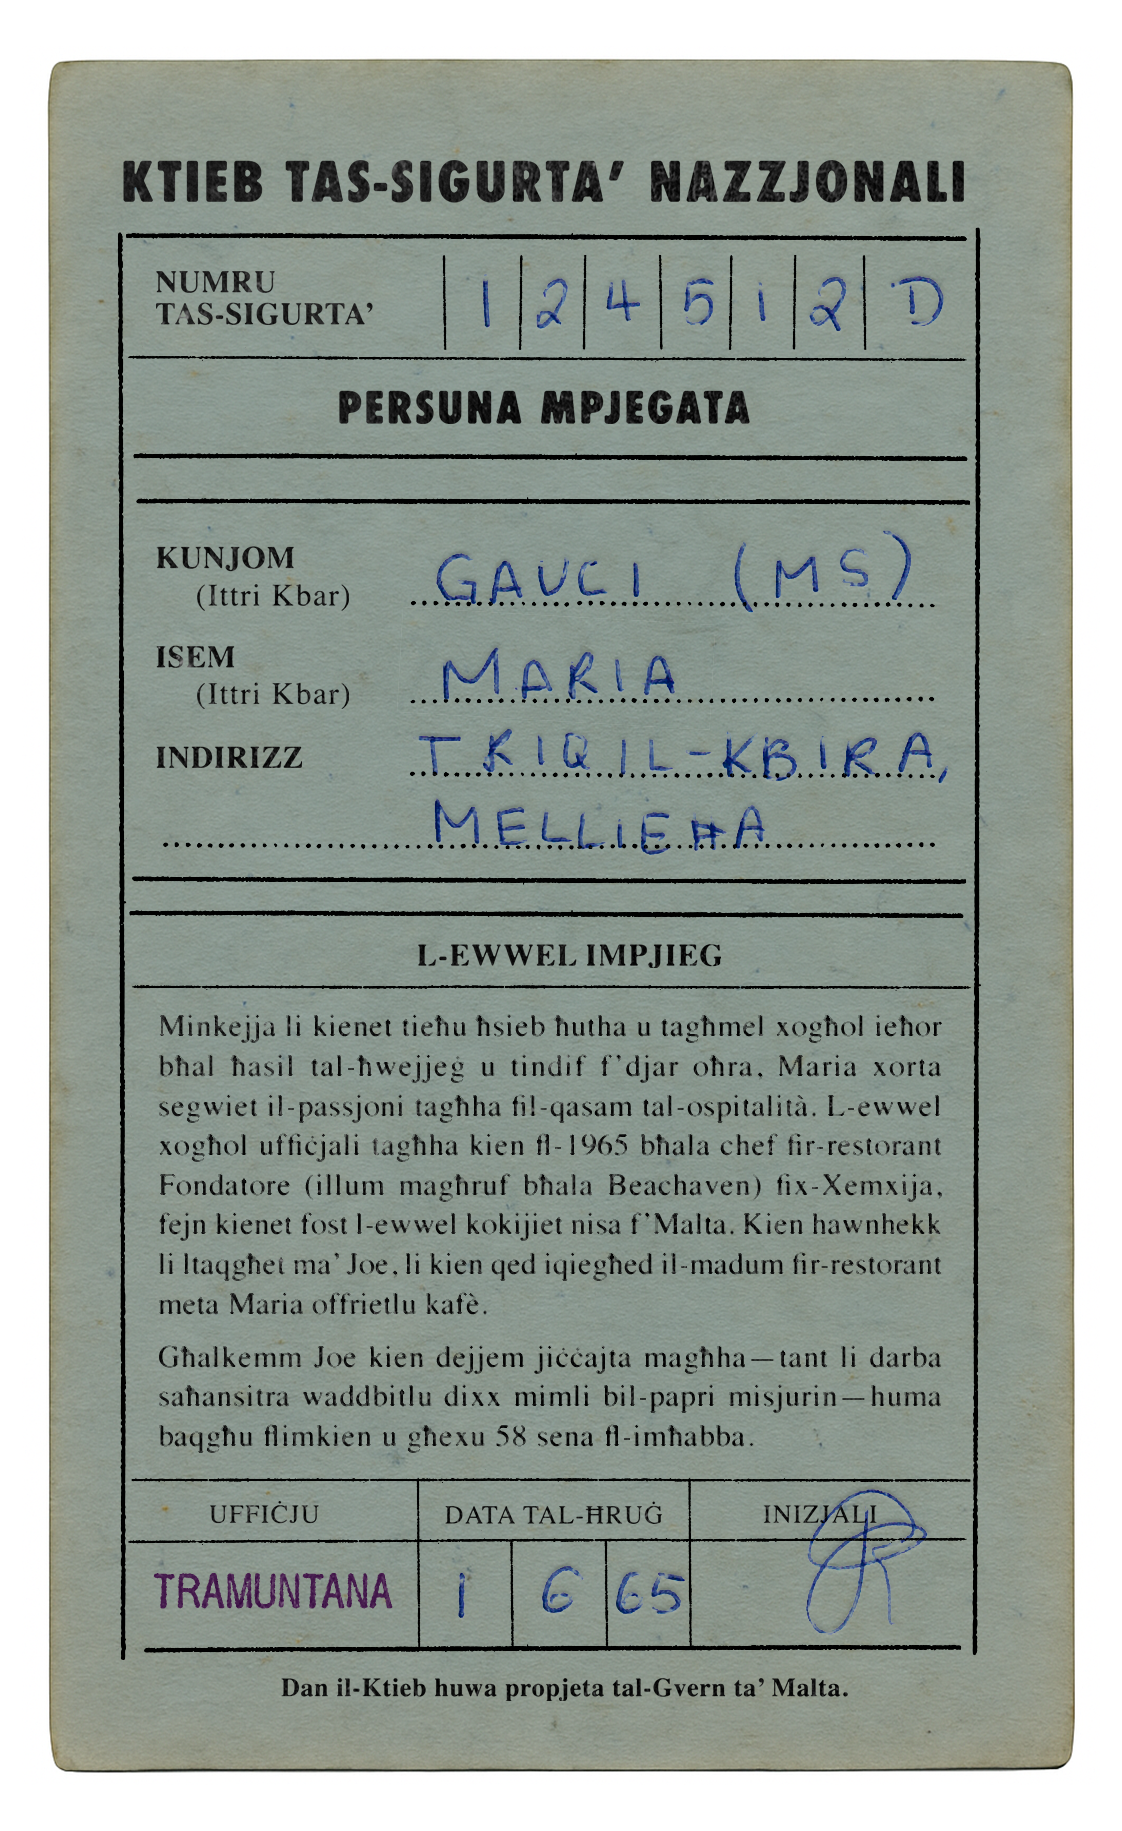 KTIEB TAS-SIGURTA' NAZZJONALI
NUMRU
TAS-SIGURTA'
1 2 4 5 1 2 D
PERSUNA MPJEGATA
KUNJOM
(Ittri Kbar)
GAUCI (MS)
ISEM
(Ittri Kbar)
MARIA
INDIRIZZ
TRIQ IL-KBIRA,
MELLIEĦA
L-EWWEL IMPJIEG
Minkejja li kienet tieħu ħsieb ħutha u tagħmel xogħol ieħor
bħal ħasil tal-ħwejjeġ u tindif f'djar oħra, Maria xorta
segwiet il-passjoni tagħha fil-qasam tal-ospitalità. L-ewwel
xogħol uffiċjali tagħha kien fl-1965 bħala chef fir-restorant
Fondatore (illum magħruf bħala Beachaven) fix-Xemxija,
fejn kienet fost l-ewwel kokijiet nisa f'Malta. Kien hawnhekk
li ltaqgħet ma' Joe, li kien qed iqiegħed il-madum fir-restorant
meta Maria offrietlu kafè.
Għalkemm Joe kien dejjem jiċċajta magħha—tant li darba
saħansitra waddbitlu dixx mimli bil-papri misjurin—huma
baqgħu flimkien u għexu 58 sena fl-imħabba.
UFFIĊJU
DATA TAL-ĦRUĠ
INIZJALI
TRAMUNTANA
1 6 65
Dan il-Ktieb huwa propjeta tal-Gvern ta' Malta.